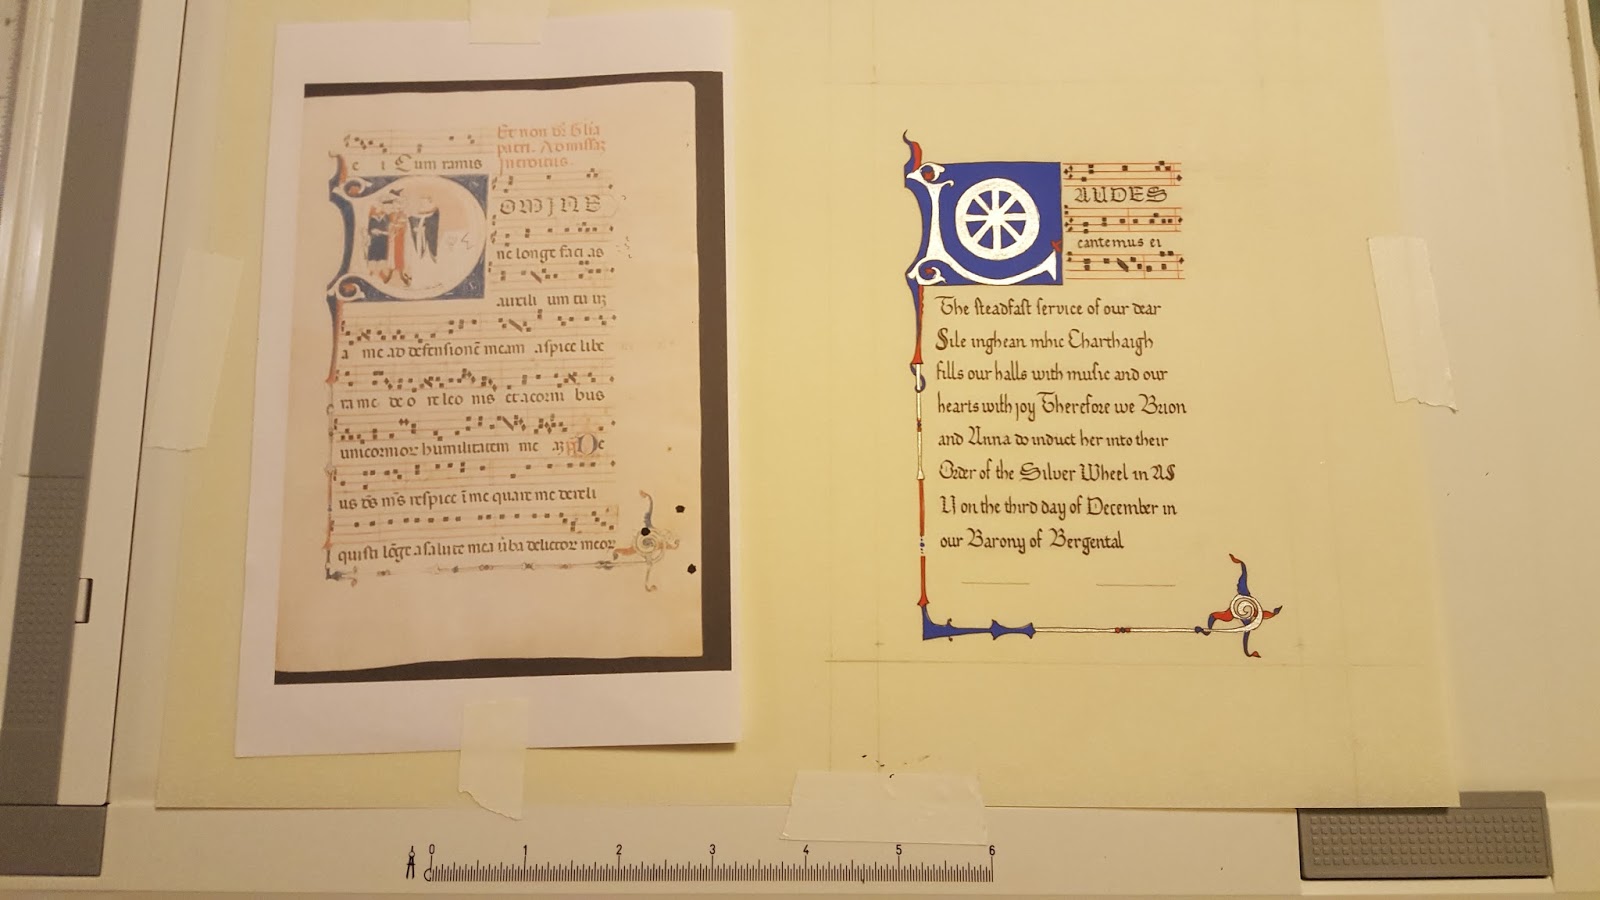 Et non dr Glia
patri. Ad missaz
Introitus.
e i Cum ramis
D OMINE
ne longe faci as
auxili um tu uz
a me ad defensionē meam aspice libe
ra me de o re leo nis et a corni bus
unicornior humilitatem me De
us ds ms respice ī me quare me dereli
quisti lōge a salute mea delictor meor
L AUDES
cantemus ei
The ſteadfaſt ſervice of our dear
Sile inghean mhic Charthaigh
fills our halls with muſic and our
hearts with joy Therefore we Brion
and Anna do induct her into their
Order of the Silver Wheel in AS
LI on the third day of December in
our Barony of Bergental
0 1 2 3 4 5 6